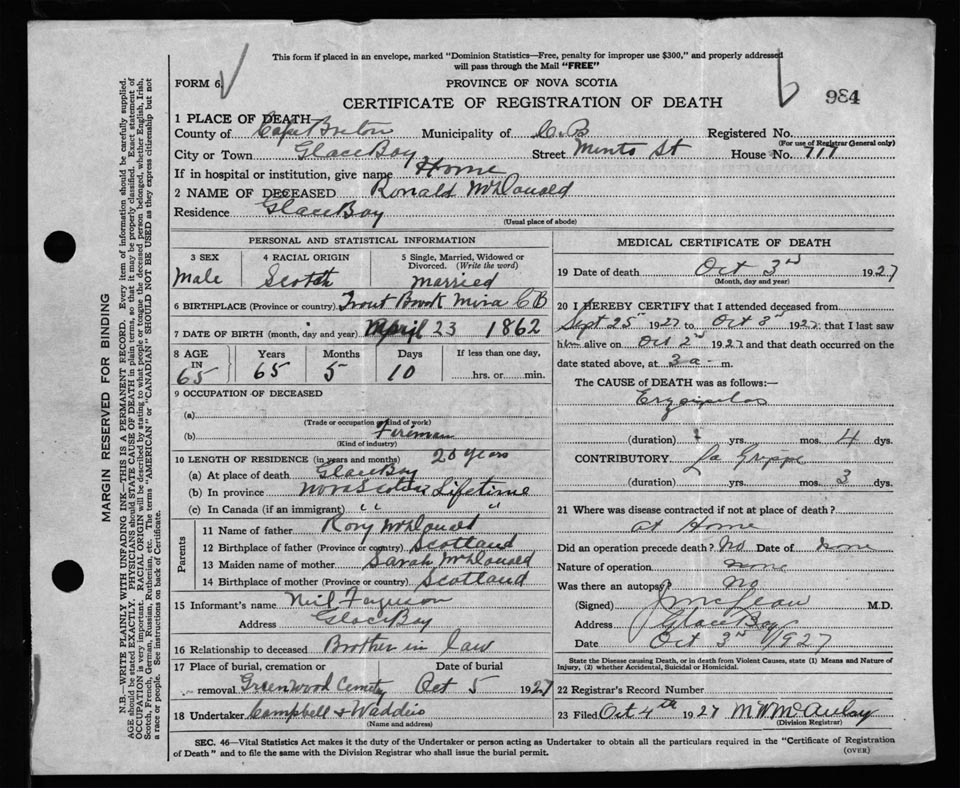 This form if placed in an envelope, marked "Dominion Statistics—Free, penalty for improper use $300," and properly addressed
will pass through the Mail "FREE"
FORM 6. PROVINCE OF NOVA SCOTIA
CERTIFICATE OF REGISTRATION OF DEATH 984
1 PLACE OF DEATH
County of Cape Breton Municipality of C.B. Registered No.
(For use of Registrar General only)
City or Town Glace Bay Street Minto St House No. 717
If in hospital or institution, give name Home
2 NAME OF DECEASED Ronald McDonald
Residence Glace Bay
(Usual place of abode)
PERSONAL AND STATISTICAL INFORMATION
3 SEX 4 RACIAL ORIGIN 5 Single, Married, Widowed or Divorced. (Write the word)
Male Scotch Married
6 BIRTHPLACE (Province or country) Trout Brook Mira CB
7 DATE OF BIRTH (month, day and year) April 23 1862
8 AGE IN Years Months Days If less than one day,
65 65 5 10 hrs. or min.
9 OCCUPATION OF DECEASED
(a)
(Trade or occupation or kind of work)
(b) Fireman
(Kind of industry)
10 LENGTH OF RESIDENCE (in years and months) 20 years
(a) At place of death Glace Bay
(b) In province Nova Scotia Lifetime
(c) In Canada (if an immigrant) " " "
Parents
11 Name of father Rory McDonald
12 Birthplace of father (Province or country) Scotland
13 Maiden name of mother Sarah McDonald
14 Birthplace of mother (Province or country) Scotland
15 Informant's name Neil Ferguson
Address Glace Bay
16 Relationship to deceased Brother in law
17 Place of burial, cremation or Date of burial
removal Greenwood Cemety Oct 5 1927
18 Undertaker Campbell & Waddin
(Name and address)
MEDICAL CERTIFICATE OF DEATH
19 Date of death Oct 3rd 1927
(Month, day and year)
20 I HEREBY CERTIFY that I attended deceased from
Sept 25th 1927 to Oct 3rd 1927, that I last saw
him alive on Oct 2nd 1927 and that death occurred on the
date stated above, at 3 a- m.
The CAUSE of DEATH was as follows:—
Erysipelas
(duration) yrs. mos. 4 dys.
CONTRIBUTORY La Grippe
(duration) yrs. mos. 3 dys.
21 Where was disease contracted if not at place of death?
at Home
Did an operation precede death? No Date of none
Nature of operation none
Was there an autopsy? No
(Signed) McLean M.D.
Address Glace Bay
Date Oct 3rd 1927
State the Disease causing Death, or in death from Violent Causes, state (1) Means and Nature of
Injury, (2) whether Accidental, Suicidal or Homicidal.
22 Registrar's Record Number
23 Filed Oct 4th 1927 McAulay
(Division Registrar)
SEC. 46—Vital Statistics Act makes it the duty of the Undertaker or person acting as Undertaker to obtain all the particulars required in the "Certificate of Registration
of Death" and to file the same with the Division Registrar who shall issue the burial permit. (OVER)
MARGIN RESERVED FOR BINDING
N.B.—WRITE PLAINLY WITH UNFADING INK—THIS IS A PERMANENT RECORD. Every item of information should be carefully supplied.
AGE should be stated EXACTLY. PHYSICIANS should STATE CAUSE OF DEATH in plain terms, so that it may be properly classified. Exact statement of
OCCUPATION is very important. RACIAL ORIGIN will be described by stating to what people or tongue the deceased person belonged, whether English, Irish,
Scotch, French, German, Russian, Ruthenian, etc. The terms "AMERICAN" or "CANADIAN" SHOULD NOT BE USED as they express citizenship but not
a race or people. See instructions on back of Certificate.